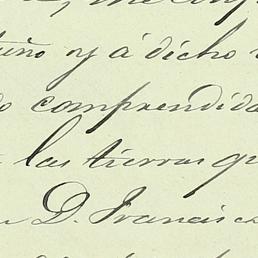 y á dicho
comprendida
las tierras qu
D. Francisc